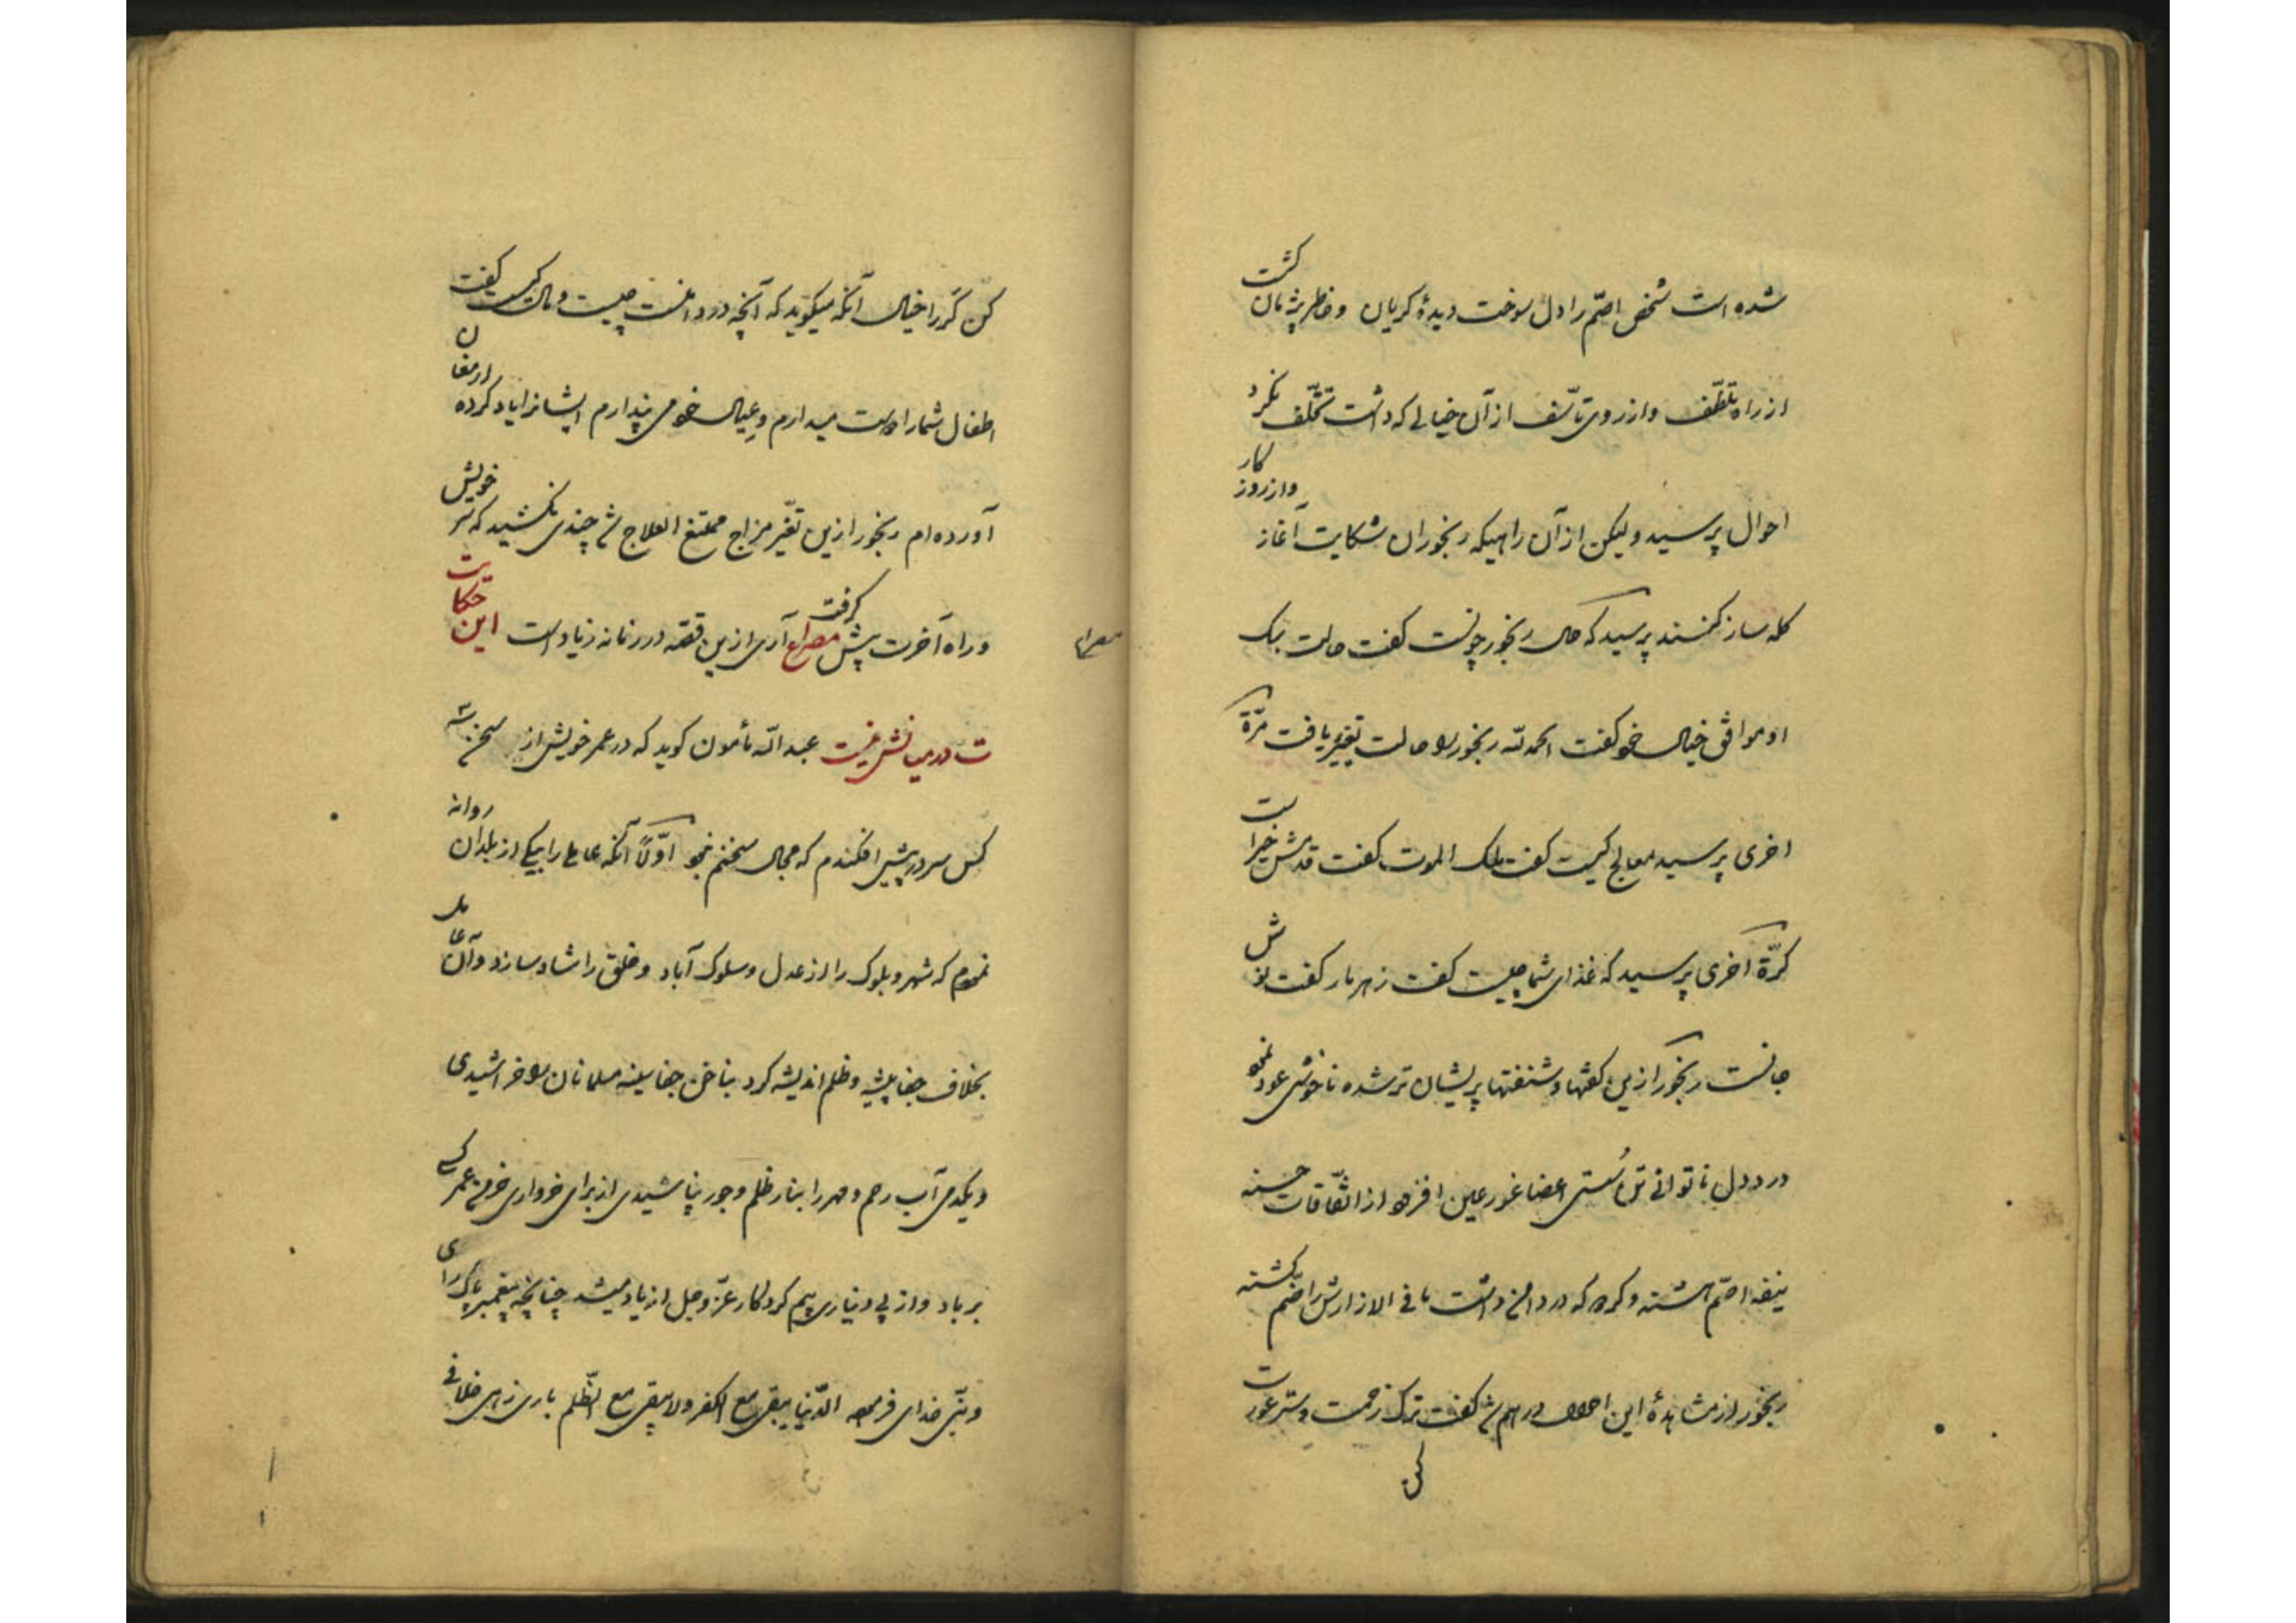 شده است شخص اصمّ را دل سوخت دیدهٔ کریان و خاطر پژمان کشت
از راه تلطّف و از روی تأسّف از آن خیالی که داشت تخلّف نکرد
احوال پرسید ولیکن از آن راهیکه رنجوران شکایت آغاز و از روز کار
کله ساز کنند پرسید که حال رنجور چونست کفت حالت
او موافق خیال خود کفت الحمد لله رنجور را حالت تغییر یافت مرّة
اخری پرسید معالج کیست کفت ملک الموت کفت قدمش خیراست
کرّة اخری پرسید که غذای شما چیست کفت زهر مار کفت نوش
جانست رنجور ازین کفتها و شنفتها پریشان تر شده ناخوشی عود نمود
درد دل ناتوانی تن سستی اعضا غور عین افزود از اتّفاقات حسنه
نیفه اصمّ هشته و کرده که در دامن داشت ما فی الازارش راضم کشته
رنجور از مشاهدهٔ این احوال درهم شد کفت ترک زحمت و ستر عورت
کن
مصراع
کن کر را خیال آنکه میکوید که آنچه در دامنست چیست و مال کیست کفت
اطفال شما را دوست میدارم و عیال خود می پندارم ایشانرا یاد کرده ارمغان
آورده ام رنجور ازین تغیّر مزاج ممتنع العلاج شد چندی نکشید که سر خویش
و راه آخرت پیش کرفت مصراع آری ازین قصّه در زمانه زیاد است این حکایت
ت در میانش نیست عبد الله مأمون کوید که در عمر خویش از سخن سه
کس سر در پیش افکندم که مجال سخنم نبود اوّلاً آنکه عاملی را بیکی از بلدان روانه
نمودم که شهر و بلوک را از عدل و سلوک آباد و خلق را شاد سازد و آن عامل
بخلاف جفا پیشه و ظلم اندیشه کرد بناخن جفا سینه مسلمانان را خراشیدی
و یکدمی آب رحم و مهر را بنار ظلم و جور نپاشیدی از برای خرواری خرمن عمر کسی
بر باد و از پی دیناری بیم کردکار عزّ و جل از یاد میشد چنانچه پیغمبر پاک رای
و نبیّ خدای فرموده الدّنیا یبقی مع الکفر و لا یبقی مع الظّلم باری زهر خلافی